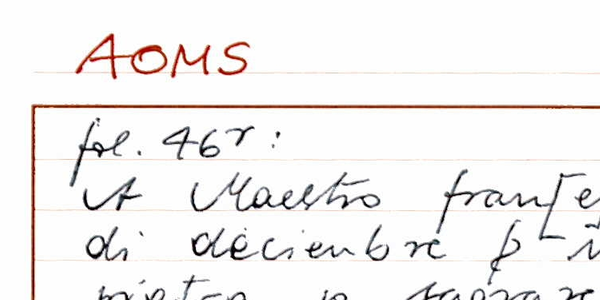 AOMS
fol. 46r:
A Maestro fran[e
di decienbre p